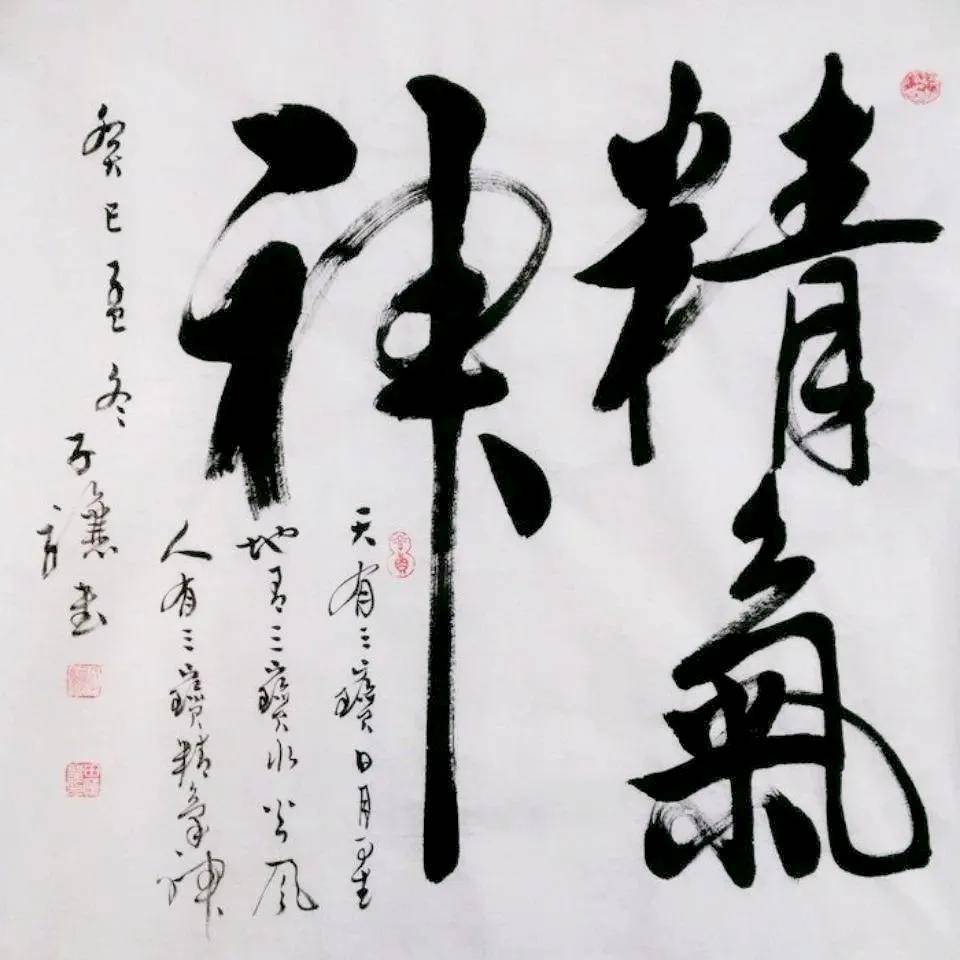 精氣
神
天有三寶日月星
地有三寶水火風
人有三寶精氣神
癸巳孟冬
子 書